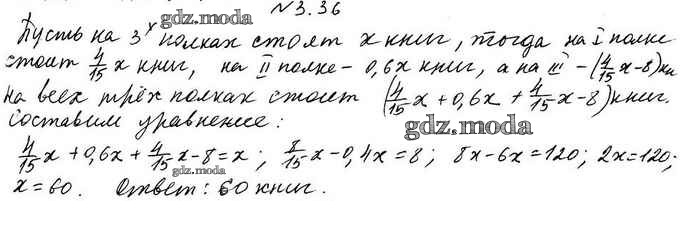 №3.36
gdz.moda
Пусть на 3х полках стоят x книг, тогда на I полке
стоит 4/15 x книг, на II полке - 0,6x книг, а на III - (4/15 x - 8) кн
на всех трёх полках стоит (4/15 x + 0,6x + 4/15 x - 8) книг.
Составим уравнение:
gdz.moda
4/15 x + 0,6x + 4/15 x - 8 = x; 8/15 x - 0,4x = 8; 8x - 6x = 120; 2x = 120;
gdz.moda
x = 60. Ответ: 60 книг.